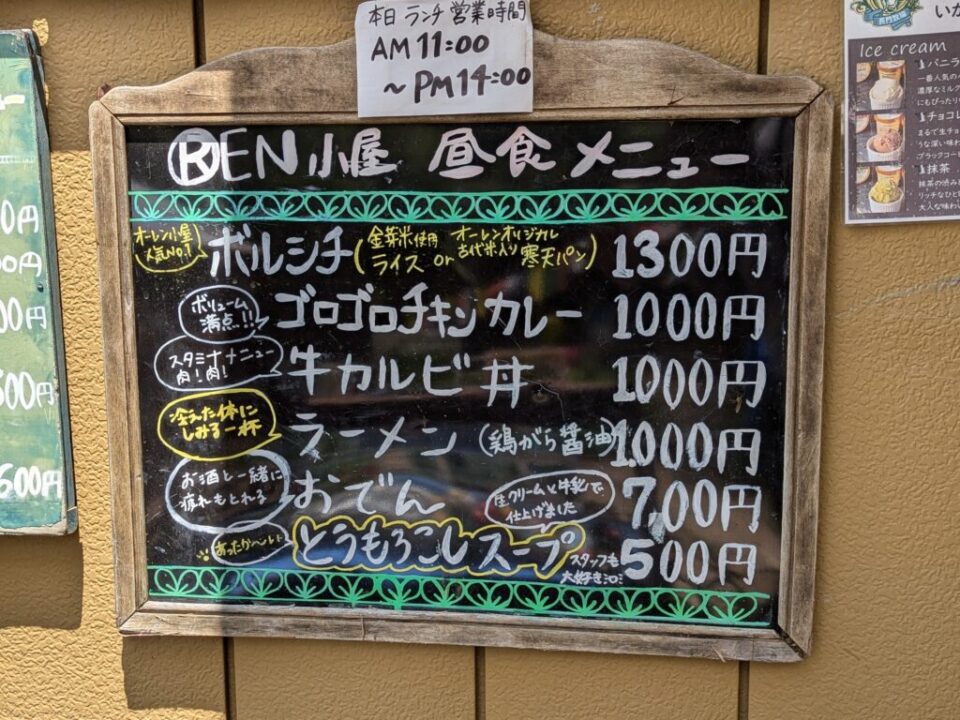 本日 ランチ 営業時間
AM 11:00
~ PM 14:00
ⓇEN小屋 昼食メニュー
オーレン小屋
人気No.1
ボルシチ(金芽米使用ライス or オーレンオリジナル古代米入り寒天パン) 1300円
ボリューム
満点!!
ゴロゴロチキンカレー 1000円
スタミナメニュー
肉!肉!
牛カルビ丼 1000円
冷えた体に
しみる一杯
ラーメン (鶏がら醤油) 1000円
お酒と一緒に
疲れもとれる
おでん 700円
生クリームと牛乳で
仕上げました
あったか〜い
とうもろこしスープ 500円
スタッフも
大好き
0円
00円
00円
500円
600円
いか
Ice cream
バニラ
一番人気の
濃厚なミルク
にもぴったり
チョコレ
まるで生チョ
うな深い味わ
ブラックコー
抹茶
抹茶の渋みと
リッチなひと
大人な味わい